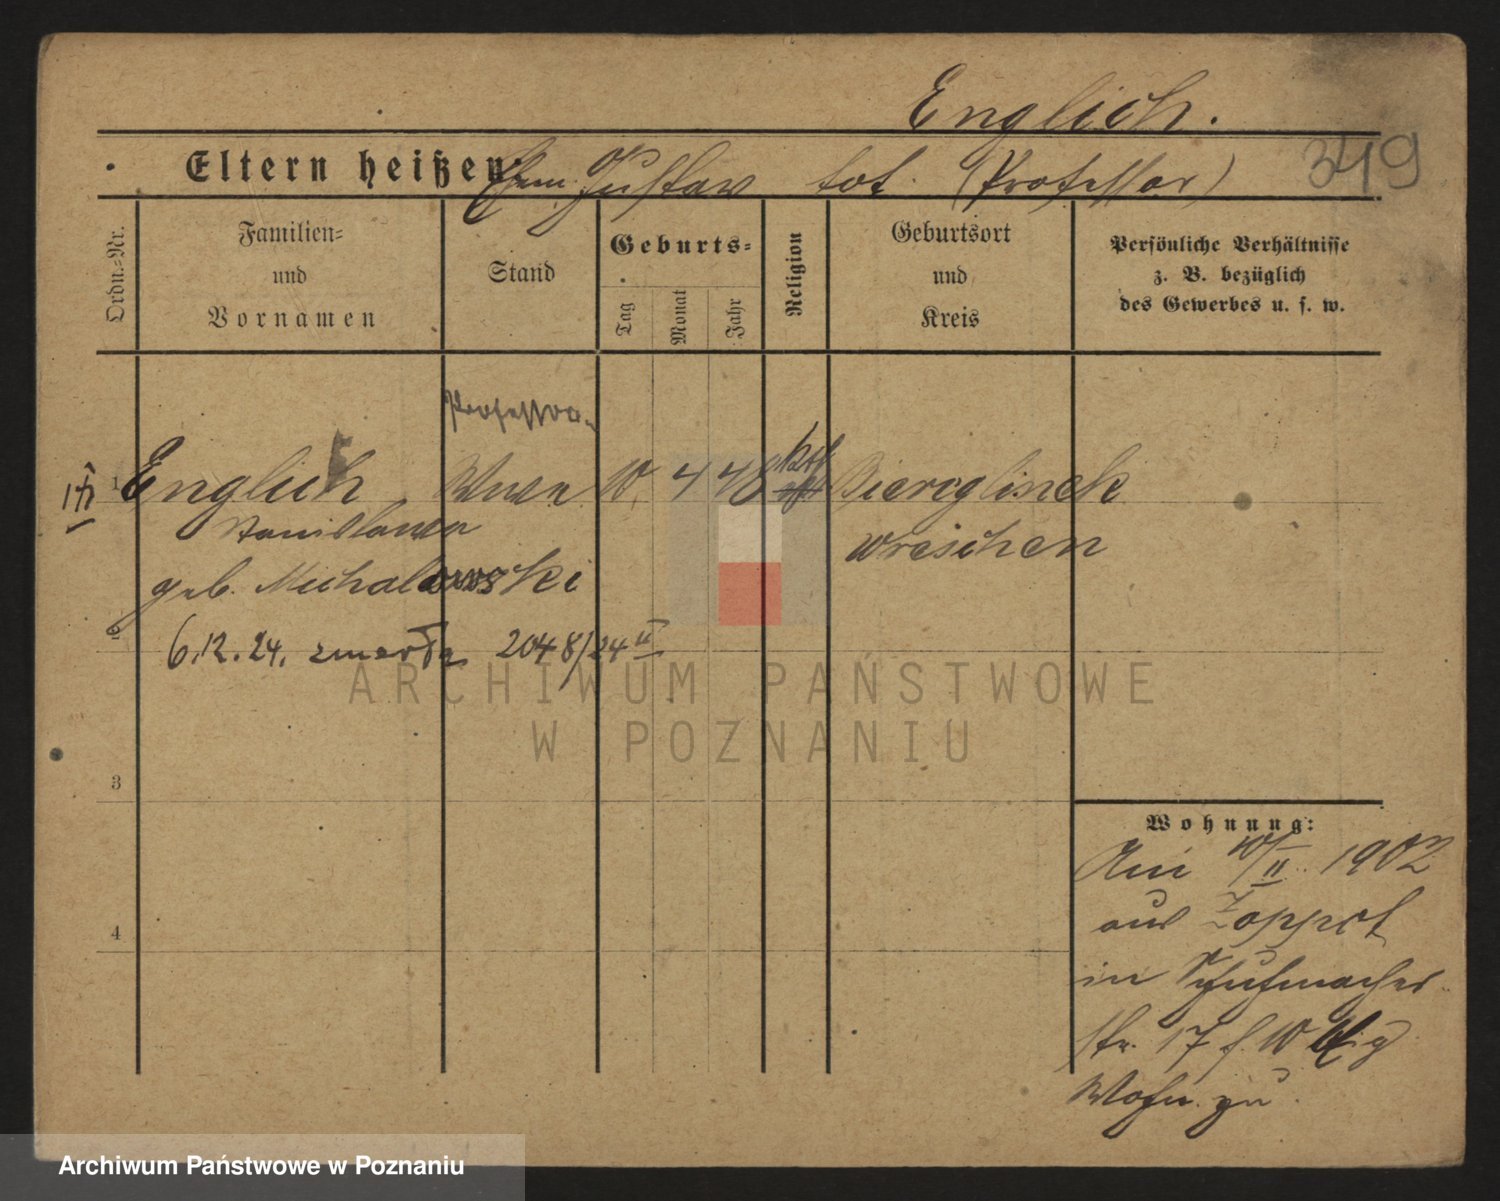 Englich.
349
Eltern heißen: Gustav tot. (Professor)
Ordn.-Nr.
Familien-
und
Vornamen
Stand
Geburts-
Tag
Monat
Jahr
Religion
Geburtsort
und
Kreis
Persönliche Verhältnisse
z. B. bezüglich
des Gewerbes u. s. w.
Professor
1 Englich 10. 4 48 kth Bieroglinek
Stanislawa Wreschen
geb. Michalowski
2
6.12.24. zmarła 2048/24 II
ARCHIWUM PAŃSTWOWE
W POZNANIU
3
Wohnung:
Am 10/II. 1902
aus Zoppot
in Schuhmacher-
str. 17
4
Wohn. zu
Archiwum Państwowe w Poznaniu